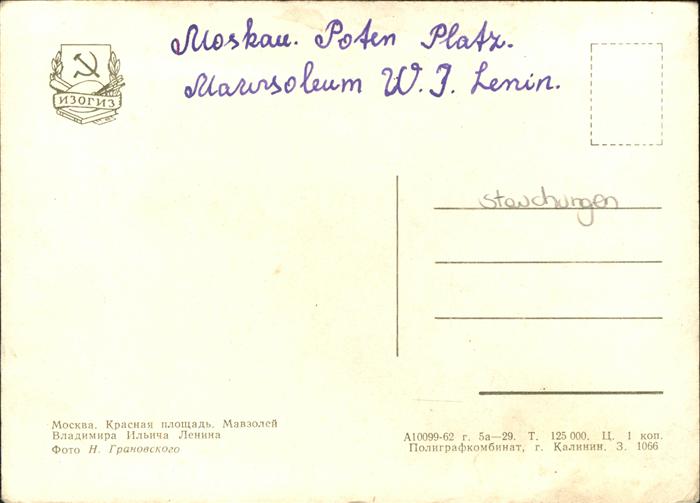 Moskau. Poten Platz.
Mausoleum W. I. Lenin.
ИЗОГИЗ
stauchungen
Москва. Красная площадь. Мавзолей
Владимира Ильича Ленина
Фото Н. Грановского
А10099-62 г. 5а—29. Т. 125 000. Ц. 1 коп.
Полиграфкомбинат, г. Калинин. З. 1066